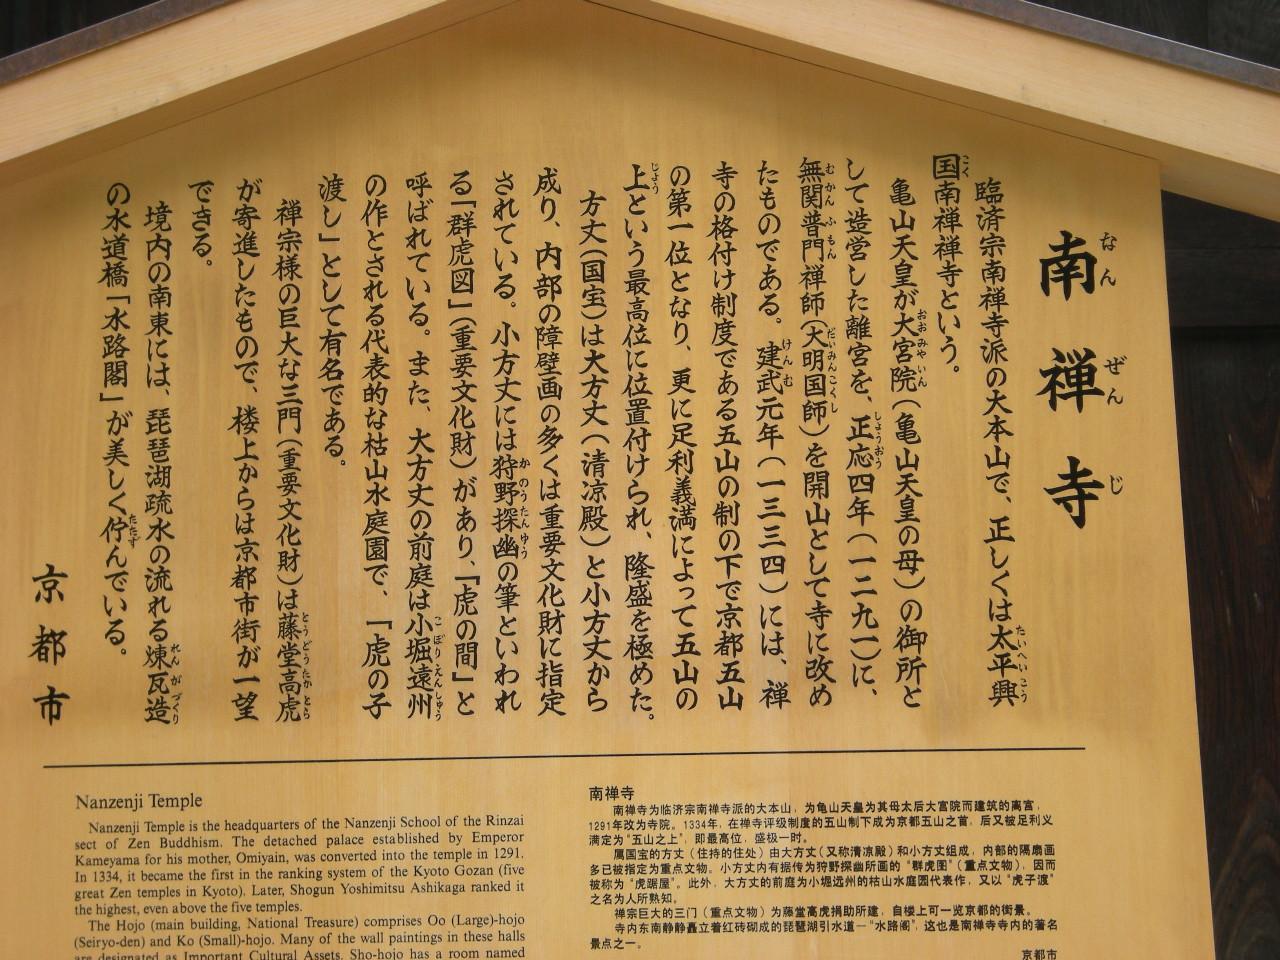 南禅寺
なんぜんじ
臨済宗南禅寺派の大本山で、正しくは太平興
たいへいこう
国南禅禅寺という。
こく
亀山天皇が大宮院（亀山天皇の母）の御所と
おおみやいん
して造営した離宮を、正応四年（一二九一）に、
しょうおう
無関普門禅師（大明国師）を開山として寺に改め
むかんふもん だいみんこくし
たものである。建武元年（一三三四）には、禅
けんむ
寺の格付け制度である五山の制の下で京都五山
の第一位となり、更に足利義満によって五山の
上という最高位に位置付けられ、隆盛を極めた。
じょう
方丈（国宝）は大方丈（清凉殿）と小方丈から
成り、内部の障壁画の多くは重要文化財に指定
されている。小方丈には狩野探幽の筆といわれ
かのうたんゆう
る「群虎図」（重要文化財）があり、「虎の間」と
呼ばれている。また、大方丈の前庭は小堀遠州
こぼりえんしゅう
の作とされる代表的な枯山水庭園で、「虎の子
渡し」として有名である。
禅宗様の巨大な三門（重要文化財）は藤堂高虎
とうどうたかとら
が寄進したもので、楼上からは京都市街が一望
できる。
境内の南東には、琵琶湖疏水の流れる煉瓦造
れんがづくり
の水道橋「水路閣」が美しく佇んでいる。
たたず
京都市
Nanzenji Temple
Nanzenji Temple is the headquarters of the Nanzenji School of the Rinzai
sect of Zen Buddhism. The detached palace established by Emperor
Kameyama for his mother, Omiyain, was converted into the temple in 1291.
In 1334, it became the first in the ranking system of the Kyoto Gozan (five
great Zen temples in Kyoto). Later, Shogun Yoshimitsu Ashikaga ranked it
the highest, even above the five temples.
The Hojo (main building, National Treasure) comprises Oo (Large)-hojo
(Seiryo-den) and Ko (Small)-hojo. Many of the wall paintings in these halls
are designated as Important Cultural Assets. Sho-hojo has a room named
南禅寺
南禅寺为临济宗南禅寺派的大本山，为龟山天皇为其母太后大宫院而建筑的离宫，
1291年改为寺院。1334年，在禅寺评级制度的五山制下成为京都五山之首，后又被足利义
满定为“五山之上”，即最高位，盛极一时。
属国宝的方丈（住持的住处）由大方丈（又称清凉殿）和小方丈组成，内部的隔扇画
多已被指定为重点文物。小方丈内有据传为狩野探幽所画的“群虎图”（重点文物），因而
被称为“虎踞屋”。此外，大方丈的前庭为小堀远州的枯山水庭园代表作，又以“虎子渡”
之名为人所熟知。
禅宗巨大的三门（重点文物）为藤堂高虎捐助所建，自楼上可一览京都的街景。
寺内东南静静矗立着红砖砌成的琵琶湖引水道－“水路阁”，这也是南禅寺寺内的著名
景点之一。
京都市